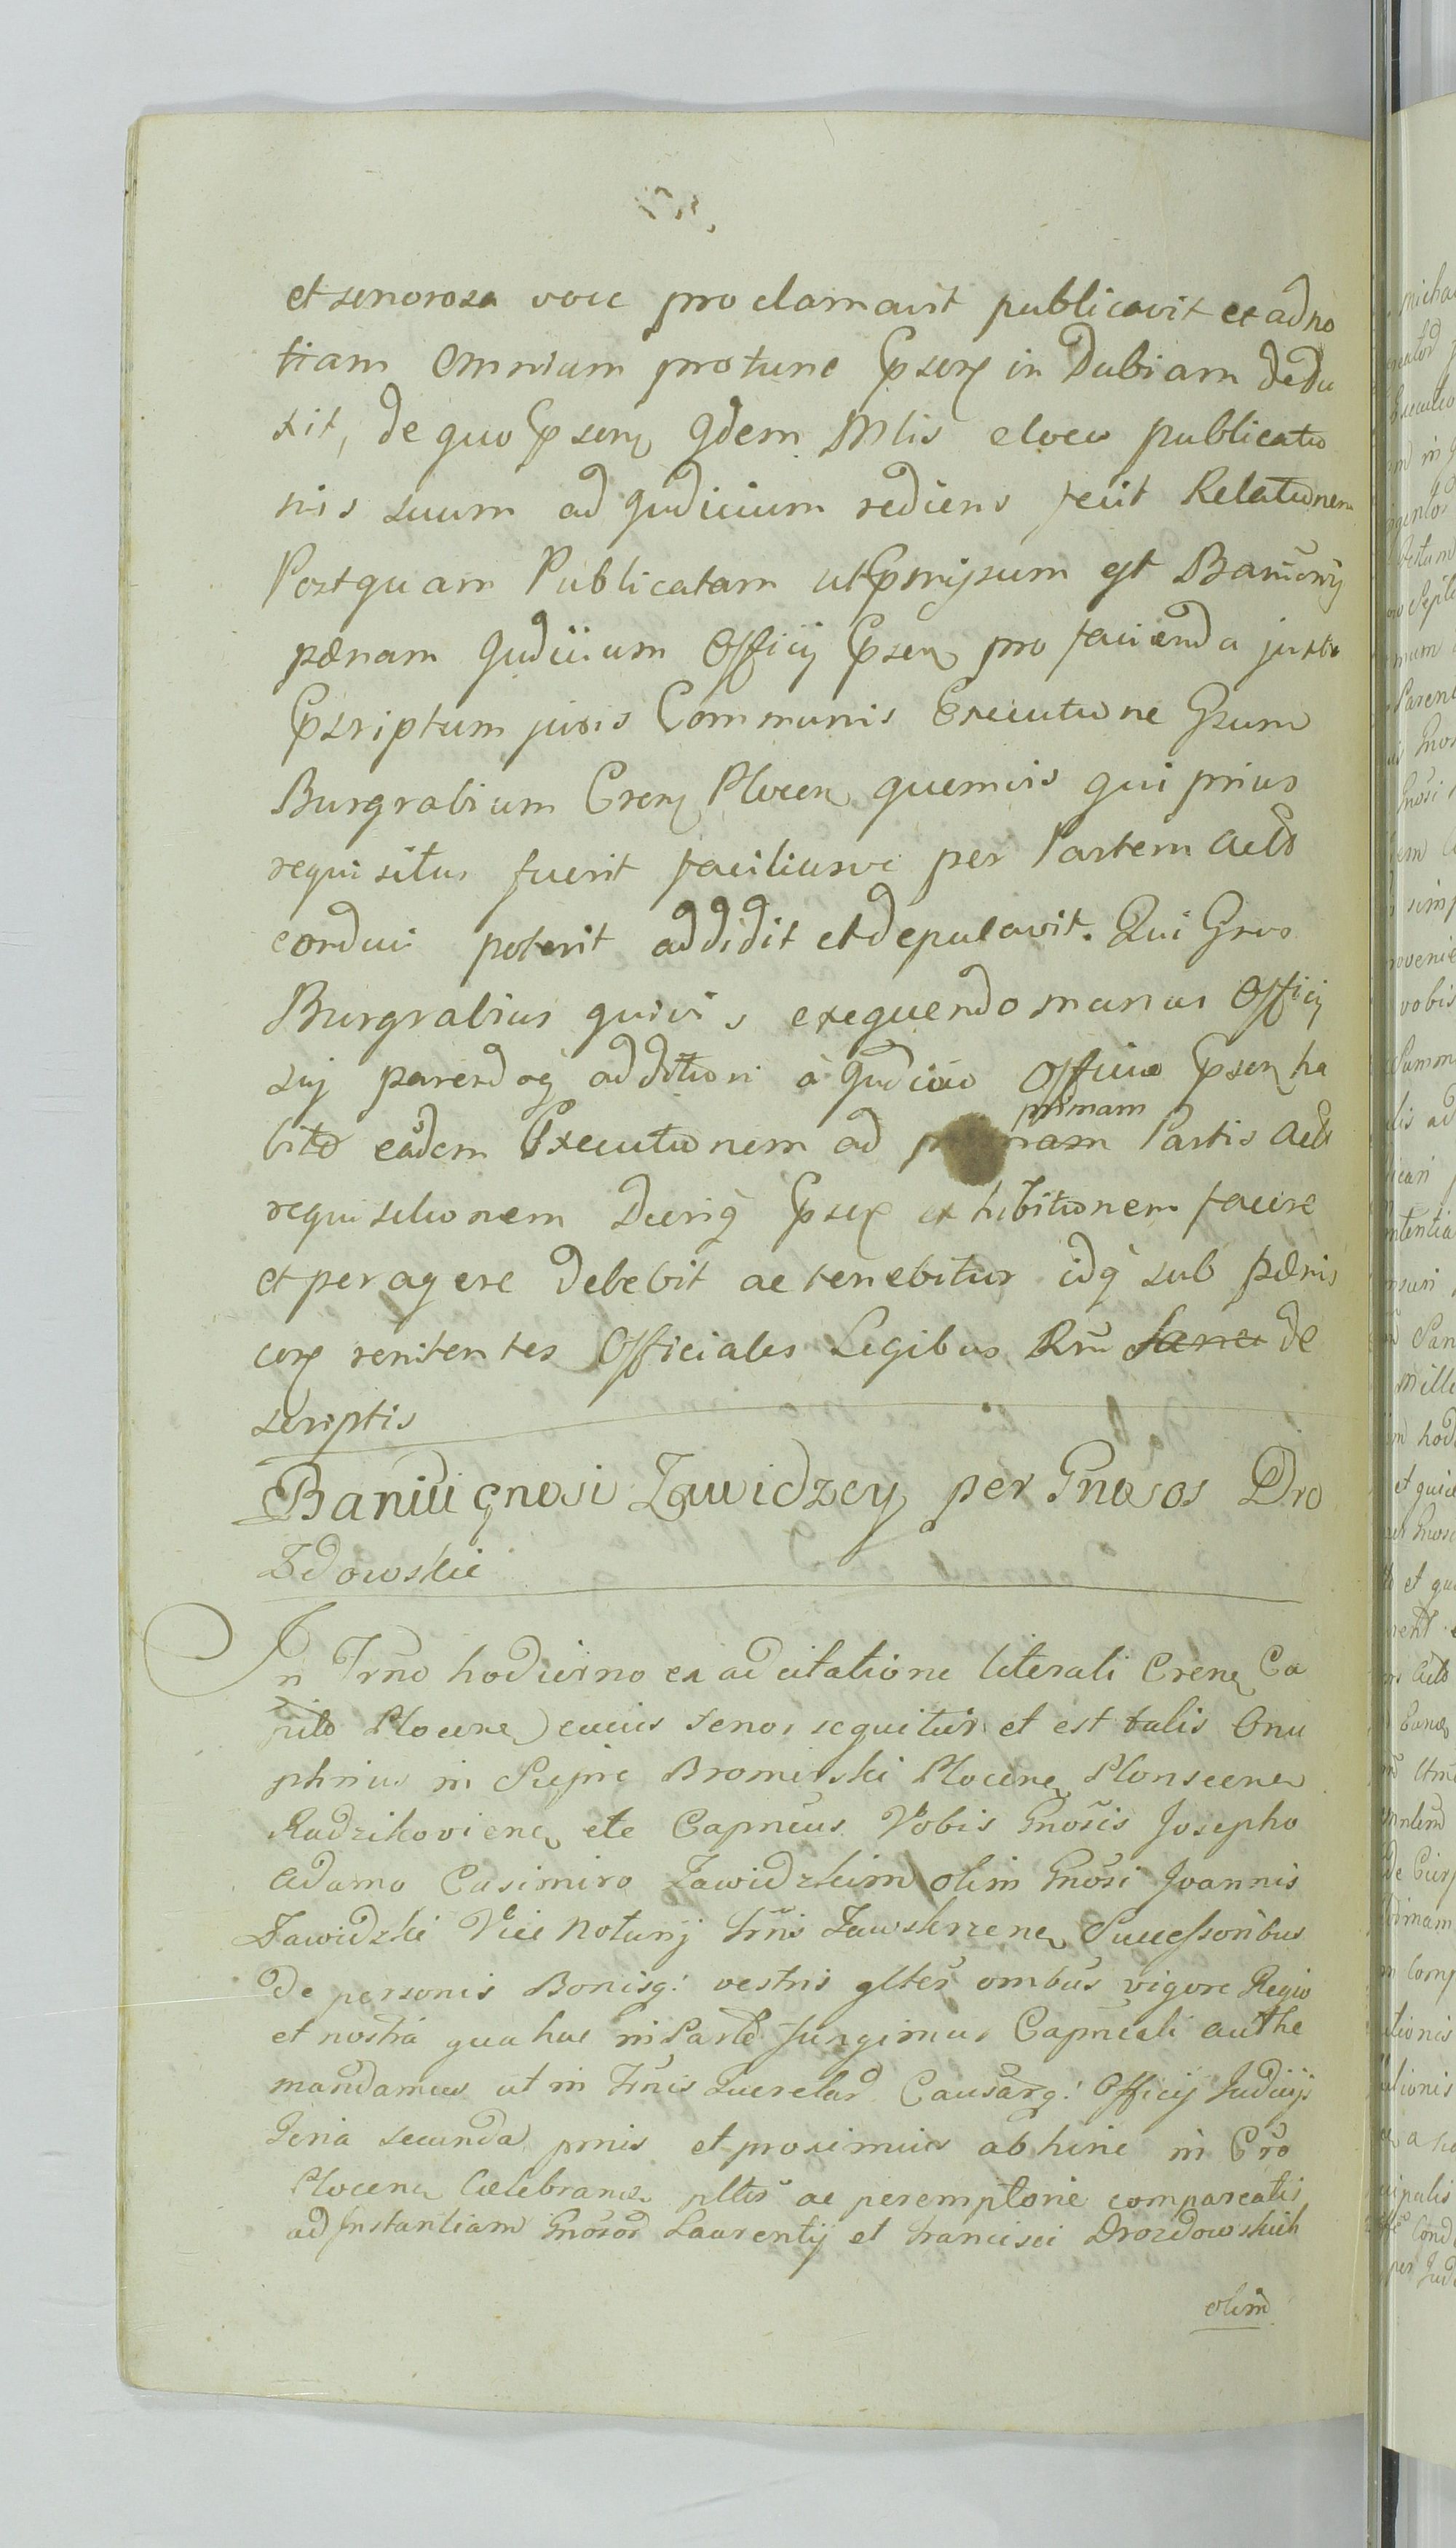 et senorosa voce proclamavit publicavit et ad no
tiam Omnium pro tunc Ppserx in Dubiam dedu
xit, de quo Ppsenq Idem Mlis eloco publicatio
nis suum ad Judicium rediens fecit Relationem
Postquam Publicatam ut Ppmissum est Bannonij
pœnam Judicium Officij Ppsenq pro facienda juxta
Ppscriptum juris Communis Executione Gsum
Burgrabium Crenq Plocen quemvis qui prius
requisitus fuerit faciliusve per Partem Acto
conduci poterit addidit et deputavit. Qui Grsus
Burgrabius quivis exequendo munus Officij
sui parendoq additioni à Judicio Officio Ppsenq ha
bito eadem Executionem ad primam Partis Acto
requisitionem Decriq Ppserx exhibitionem facere
et peragere debebit ac tenebitur idq sub pœnis
corx renitentes Officiales Legibus Rni de
scriptis
Banitie gnosi Zawidzey per Gnosos Dro
zdowskie
In Trno hodierno ex ad citatione literali Crenq Ca
pito Plocene) cuius tenor sequitur et est talis Onu
phrius in Siepre Bromirski Plocenq Plonscenq
Radzikovienq etc Capneus Vobis Gnosis Josepho
Adamo Casimiro Zawidzkim olim Gnosi Joannis
Zawidzki Vice Notarij Trnis Zawskrzenq Successoribus
De personis Bonisq: vestris glter ombus vigore Regio
et nostra qua hac in Parte fungimur Capneali authe
mandamus ut in Trnis Querelar Causarq: Officij Judicijs
Feria secunda pnis et proximius abhinc in Cro
Plocenq Celebranx plter ac peremptorie compareatis
ad Instantiam Gnosor Laurentij et Francisci Drozdowskich
olim